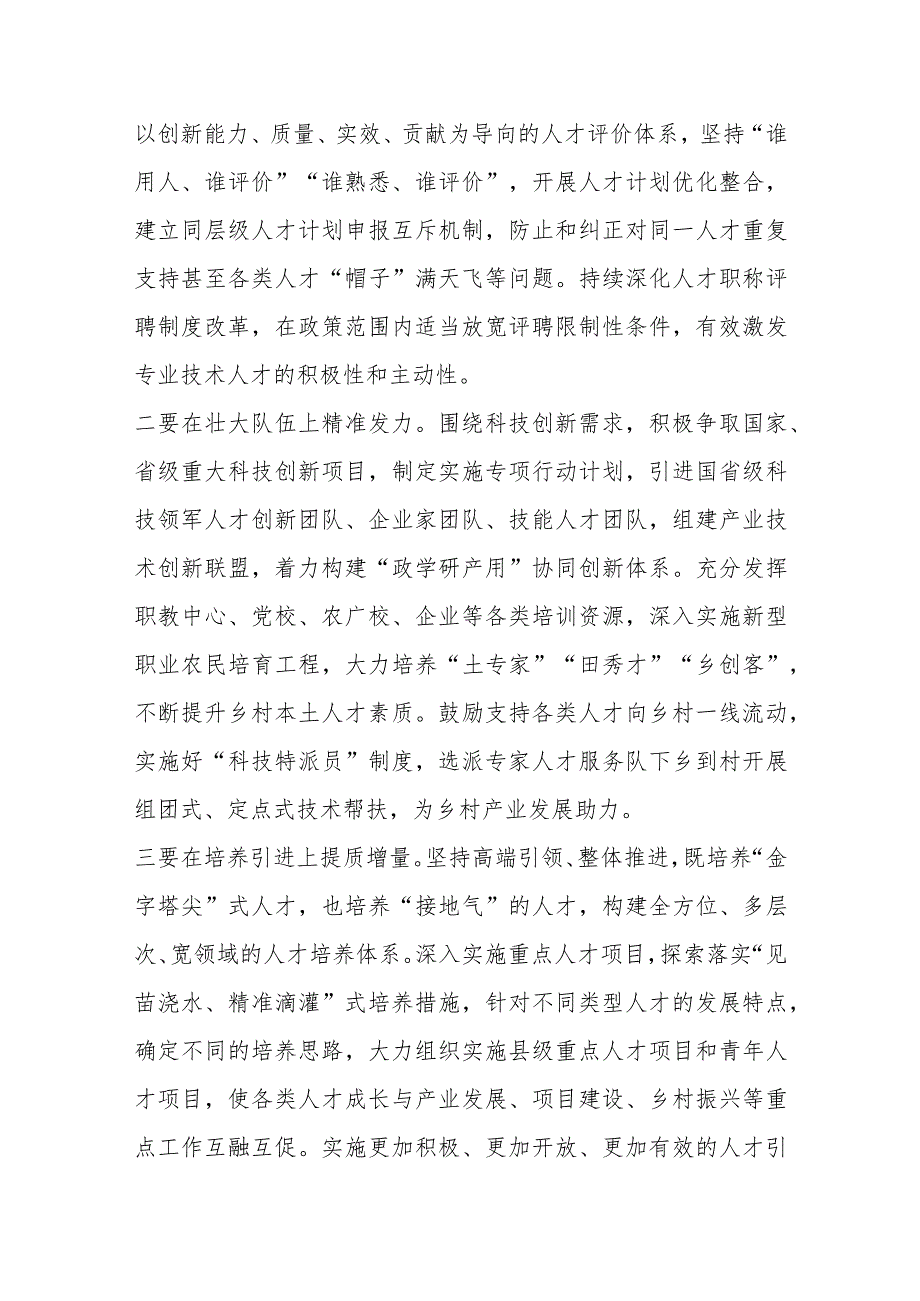 以创新能力、质量、实效、贡献为导向的人才评价体系，坚持“谁
用人、谁评价”“谁熟悉、谁评价”，开展人才计划优化整合，
建立同层级人才计划申报互斥机制，防止和纠正对同一人才重复
支持甚至各类人才“帽子”满天飞等问题。持续深化人才职称评
聘制度改革，在政策范围内适当放宽评聘限制性条件，有效激发
专业技术人才的积极性和主动性。
二要在壮大队伍上精准发力。围绕科技创新需求，积极争取国家、
省级重大科技创新项目，制定实施专项行动计划，引进国省级科
技领军人才创新团队、企业家团队、技能人才团队，组建产业技
术创新联盟，着力构建“政学研产用”协同创新体系。充分发挥
职教中心、党校、农广校、企业等各类培训资源，深入实施新型
职业农民培育工程，大力培养“土专家”“田秀才”“乡创客”，
不断提升乡村本土人才素质。鼓励支持各类人才向乡村一线流动，
实施好“科技特派员”制度，选派专家人才服务队下乡到村开展
组团式、定点式技术帮扶，为乡村产业发展助力。
三要在培养引进上提质增量。坚持高端引领、整体推进，既培养“金
字塔尖”式人才，也培养“接地气”的人才，构建全方位、多层
次、宽领域的人才培养体系。深入实施重点人才项目，探索落实“见
苗浇水、精准滴灌”式培养措施，针对不同类型人才的发展特点，
确定不同的培养思路，大力组织实施县级重点人才项目和青年人
才项目，使各类人才成长与产业发展、项目建设、乡村振兴等重
点工作互融互促。实施更加积极、更加开放、更加有效的人才引